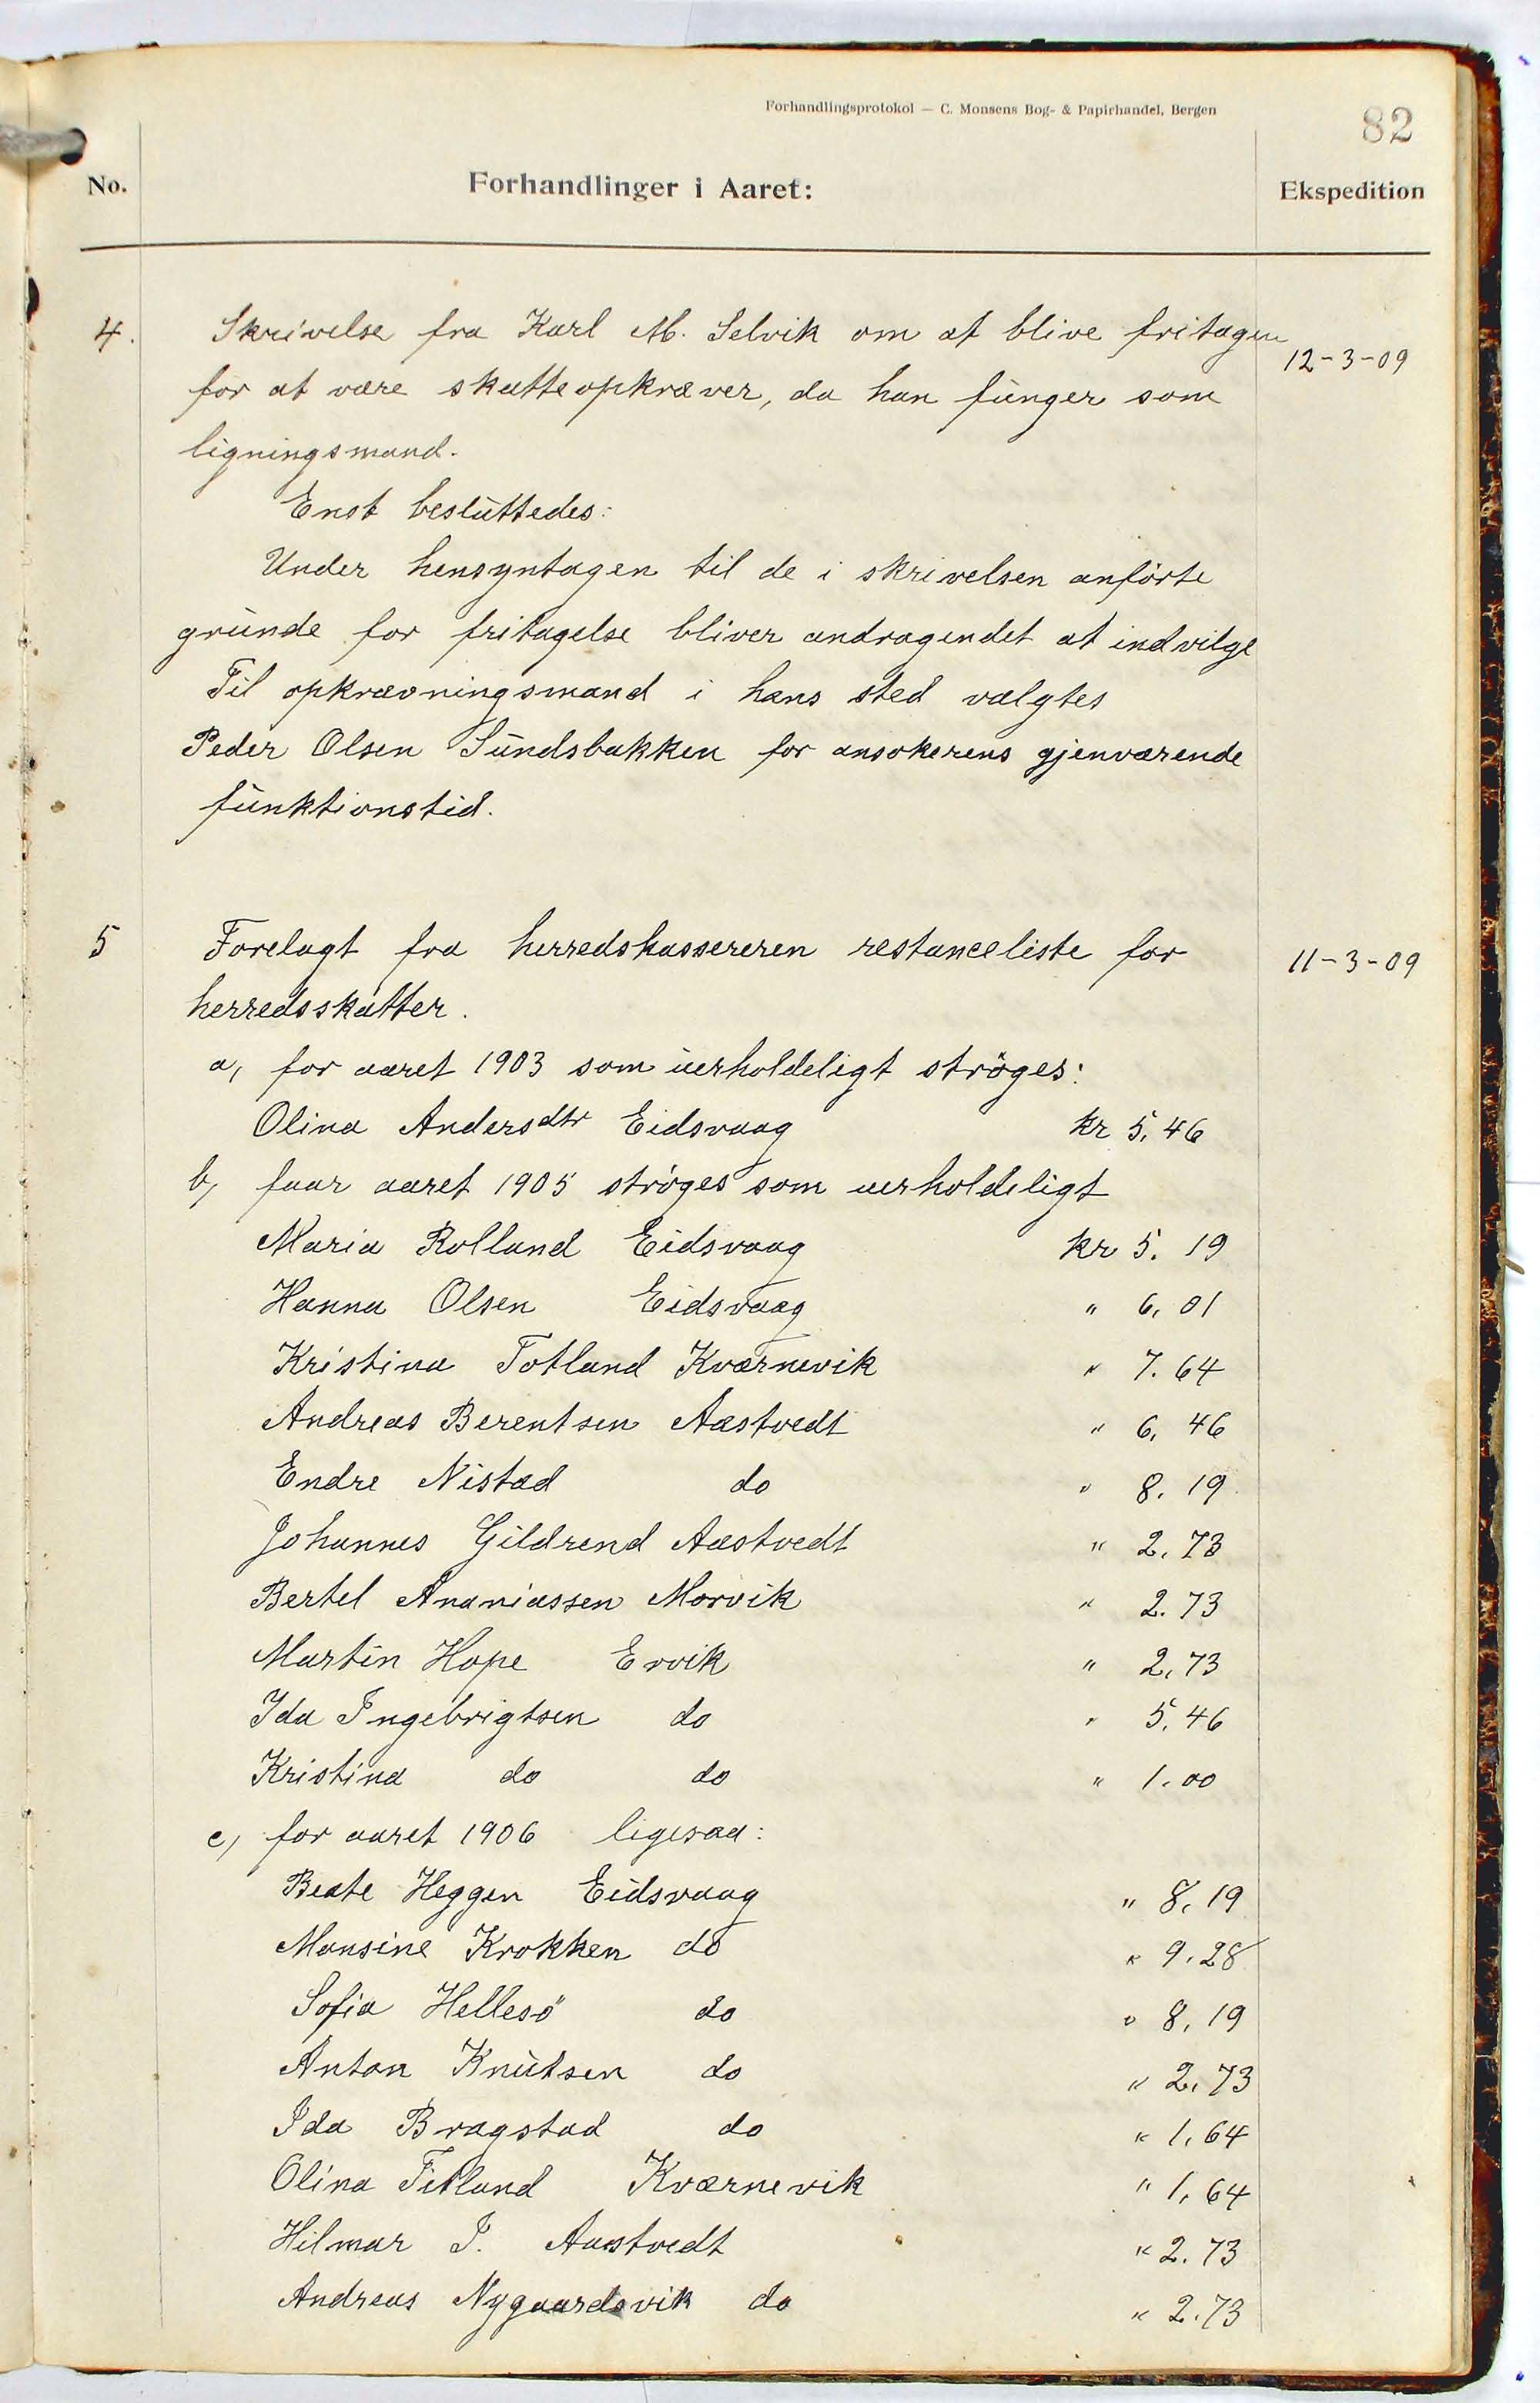 Forhandlingsprotokol — C. Monsens Bog- & Papirhandel, Bergen
82
No. Forhandlinger i Aaret: Ekspedition
4. Skrivelse fra Karl M. Selvik om at blive fritagen 12-3-09
for at være skatteopkræver, da han funger som
ligningsmand.
Enst besluttedes:
Under hensyntagen til de i skrivelsen anførte
grunde for fritagelse bliver andragendet at indvilge
Til opkrævningsmand i hans sted valgtes
Peder Olsen Sundsbakken for ansøkerens gjenværende
funktionstid.
5 Forelagt fra herredskassereren restanceliste for 11-3-09
herredsskatter.
a, for aaret 1903 som uerholdeligt strøges:
Olina Andersdtr Eidsvaag kr 5,46
b, faar aaret 1905 strøges som uerholdeligt
Maria Rolland Eidsvaag kr 5.19
Hanna Olsen Eidsvaag " 6,01
Kristina Totland Kværnevik " 7.64
Andreas Berentsen Aastvedt " 6,46
Endre Nistad do " 8.19
Johannes Gildrend Aastvedt " 2.73
Bertel Ananiassen Morvik " 2.73
Martin Hope Ervik " 2,73
Ida Ingebrigtsen do " 5,46
Kristina do do " 1.00
c, for aaret 1906 ligesaa:
Beate Heggen Eidsvaag " 8,19
Monsine Krokken do " 9.28
Sofia Hellesö do " 8,19
Anton Knutsen do " 2,73
Ida Bragstad do " 1,64
Olina Titland Kværnevik " 1,64
Hilmar I. Aastvedt " 2.73
Andreas Nygaardsvik do " 2.73